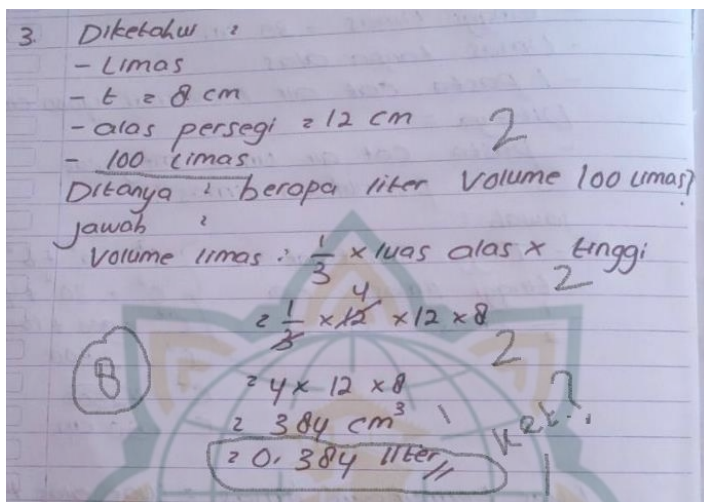 3. Diketahui :
- Limas
- t = 8 cm
- alas persegi = 12 cm 2
- 100 Limas
Ditanya : berapa liter Volume 100 Limas?
Jawab :
Volume limas : 1/3 × luas alas × tinggi 2
= 1/3 × 12 4 × 12 × 8
8 = 4 × 12 × 8 2
= 384 cm³ 1
= 0,384 liter // 1